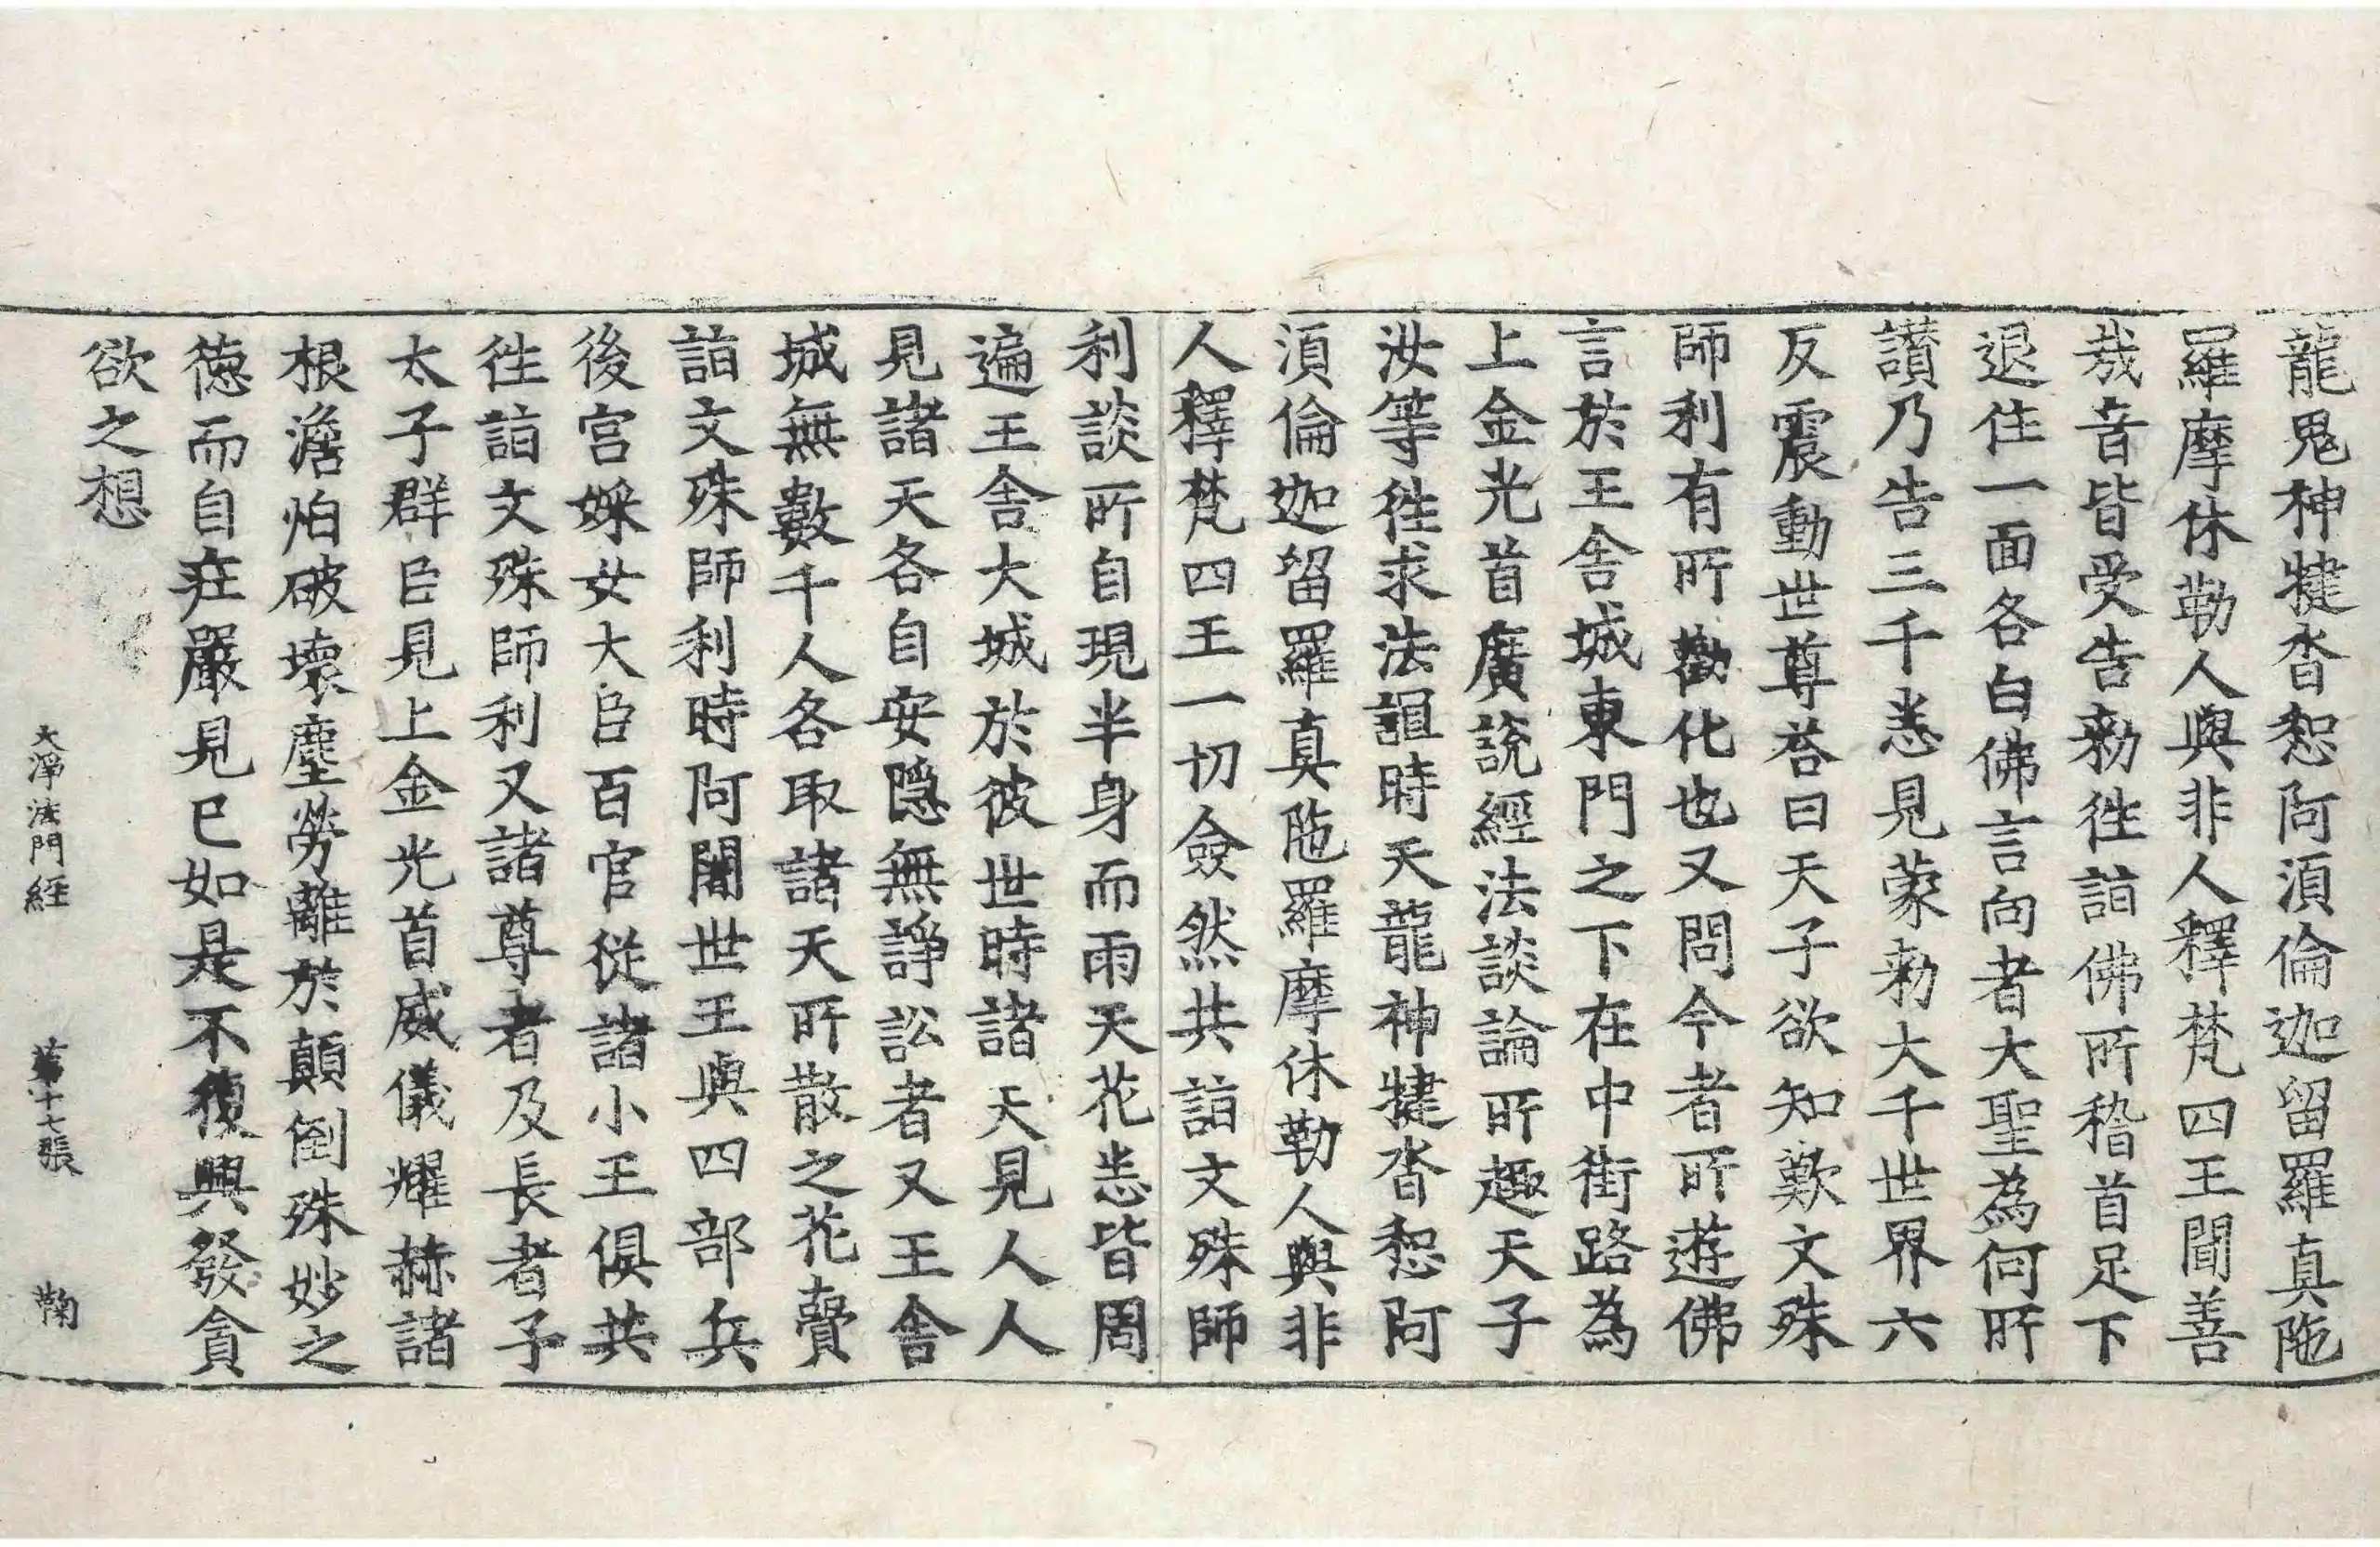 龍鬼神揵沓惒阿湏倫迦留羅真陁
羅摩休勒人與非人釋梵四王聞善
㢤音皆受告勑徃詣佛所稽首足下
退住一面各白佛言向者大聖為何所
讃乃告三千悉見蒙勑大千世界六
反震動世尊荅曰天子欲知歎文殊
師利有所勸化也又問今者所遊佛
言於王舍城東門之下在中街路為
上金光首廣說經法談論所趣天子
汝等徃求法誼時天龍神揵沓惒阿
湏倫迦留羅真陁羅摩休勒人與非
人釋梵四王一切僉然共詣文殊師
利談所自現半身而雨天花悉皆周
遍王舍大城於彼世時諸天見人人
見諸天各自安隱無諍訟者又王舍
城無數千人各取諸天所散之花賷
詣文殊師利時阿闍世王與四部兵
後宮婇女大臣百官從諸小王俱共
徃詣文殊師利又諸尊者及長者子
太子群臣見上金光首威儀耀赫諸
根澹怕破壞塵勞離於顛倒殊妙之
德而自㽵嚴見已如是不復興發貪
欲之想
大淨法門經 第十七張 鞠